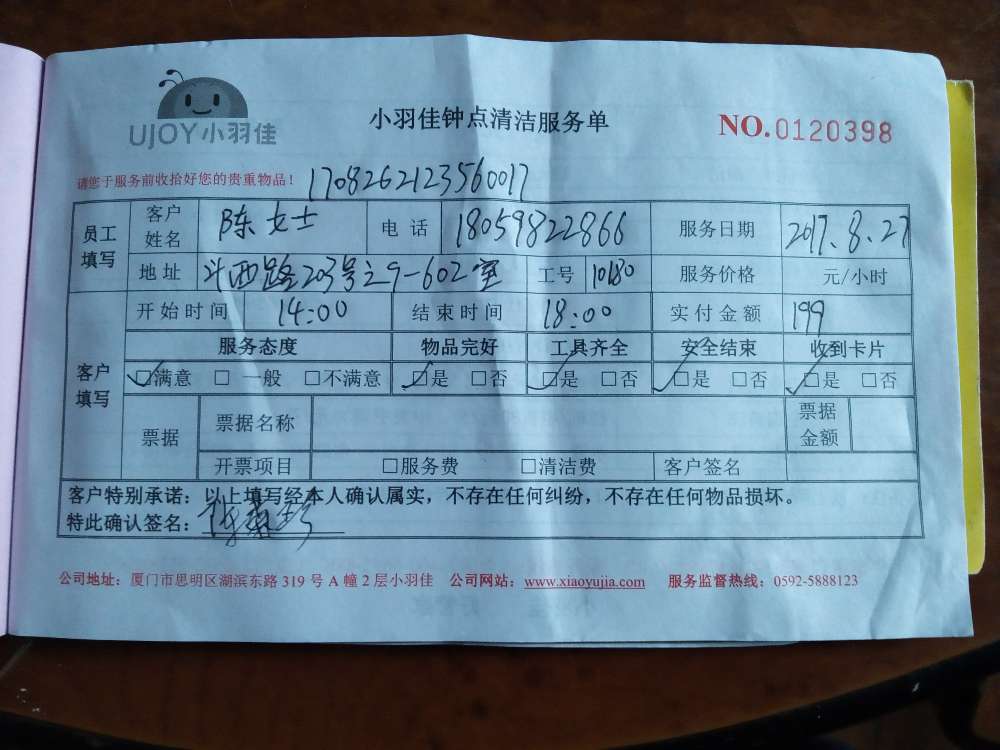 UJOY小羽佳
小羽佳钟点清洁服务单
NO.0120398
请您于服务前收拾好您的贵重物品！ 1708262123560017
员工填写 客户姓名 陈女士 电话 18059822866 服务日期 2017.8.27
地址 斗西路203号之9-602室 工号 10180 服务价格 元/小时
客户填写 开始时间 14:00 结束时间 18:00 实付金额 199
服务态度 物品完好 工具齐全 安全结束 收到卡片
☑满意 □一般 □不满意 ☑是 □否 ☑是 □否 ☑是 □否 ☑是 □否
票据 票据名称 票据金额
开票项目 □服务费 □清洁费 客户签名
客户特别承诺：以上填写经本人确认属实，不存在任何纠纷，不存在任何物品损坏。
特此确认签名：
公司地址：厦门市思明区湖滨东路 319 号 A 幢 2 层小羽佳 公司网站：www.xiaoyujia.com 服务监督热线：0592-5888123